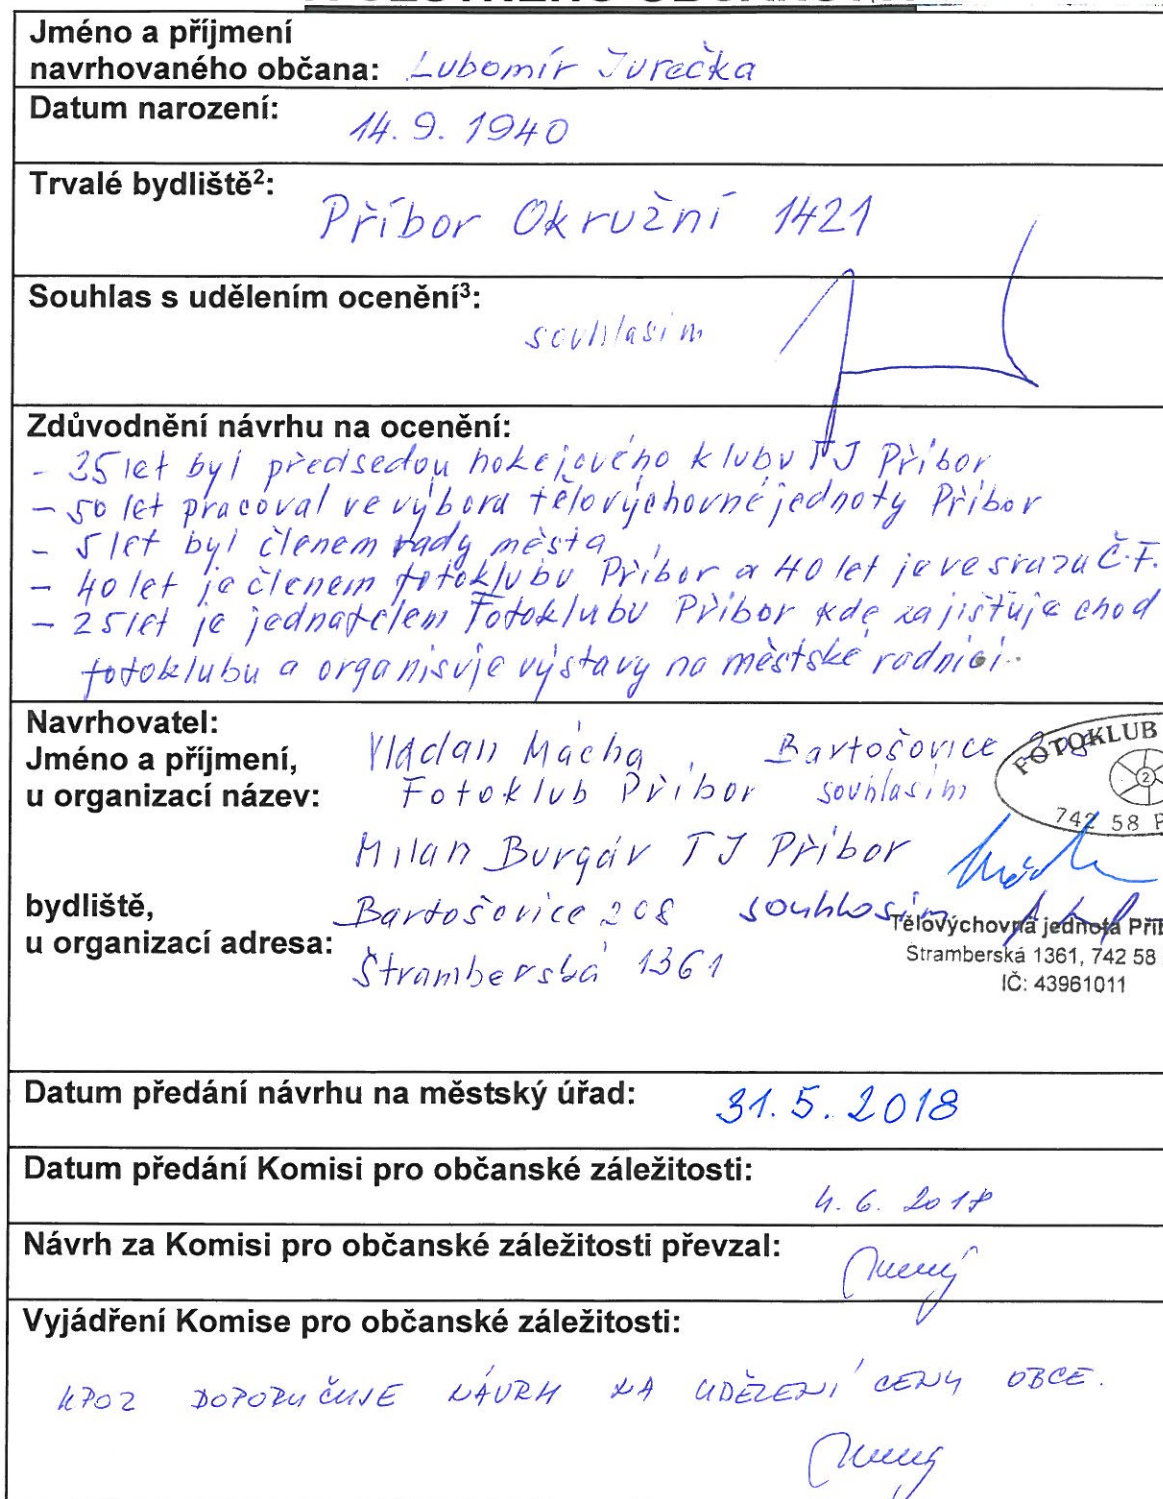 Jméno a příjmení
navrhovaného občana: Lubomír Jurečka
Datum narození:
14. 9. 1940
Trvalé bydliště²:
Příbor Okružní 1421
Souhlas s udělením ocenění³:
souhlasím
Zdůvodnění návrhu na ocenění:
- 35 let byl předsedou hokejového klubu TJ Příbor
- 50 let pracoval ve výboru tělovýchovné jednoty Příbor
- 5 let byl členem rady města
- 40 let je členem fotoklubu Příbor a 40 let je ve svazu Č.F.
- 25 let je jednatelem Fotoklubu Příbor kde zajišťuje chod
fotoklubu a organisuje výstavy na městské radnici.
Navrhovatel:
Jméno a příjmení,
u organizací název:
Vladan Mácha, Bartošovice
Fotoklub Příbor souhlasím
FOTOKLUB
2
742 58 P
Milan Burgár TJ Příbor
bydliště,
u organizací adresa:
Bartošovice 208 souhlasím
Štramberská 1361
Tělovýchovná jednota Příb
Štramberská 1361, 742 58
IČ: 43961011
Datum předání návrhu na městský úřad: 31. 5. 2018
Datum předání Komisi pro občanské záležitosti:
4. 6. 2018
Návrh za Komisi pro občanské záležitosti převzal:
Vyjádření Komise pro občanské záležitosti:
KPOZ DOPORUČUJE NÁVRH NA UDĚLENÍ CENY OBCE.